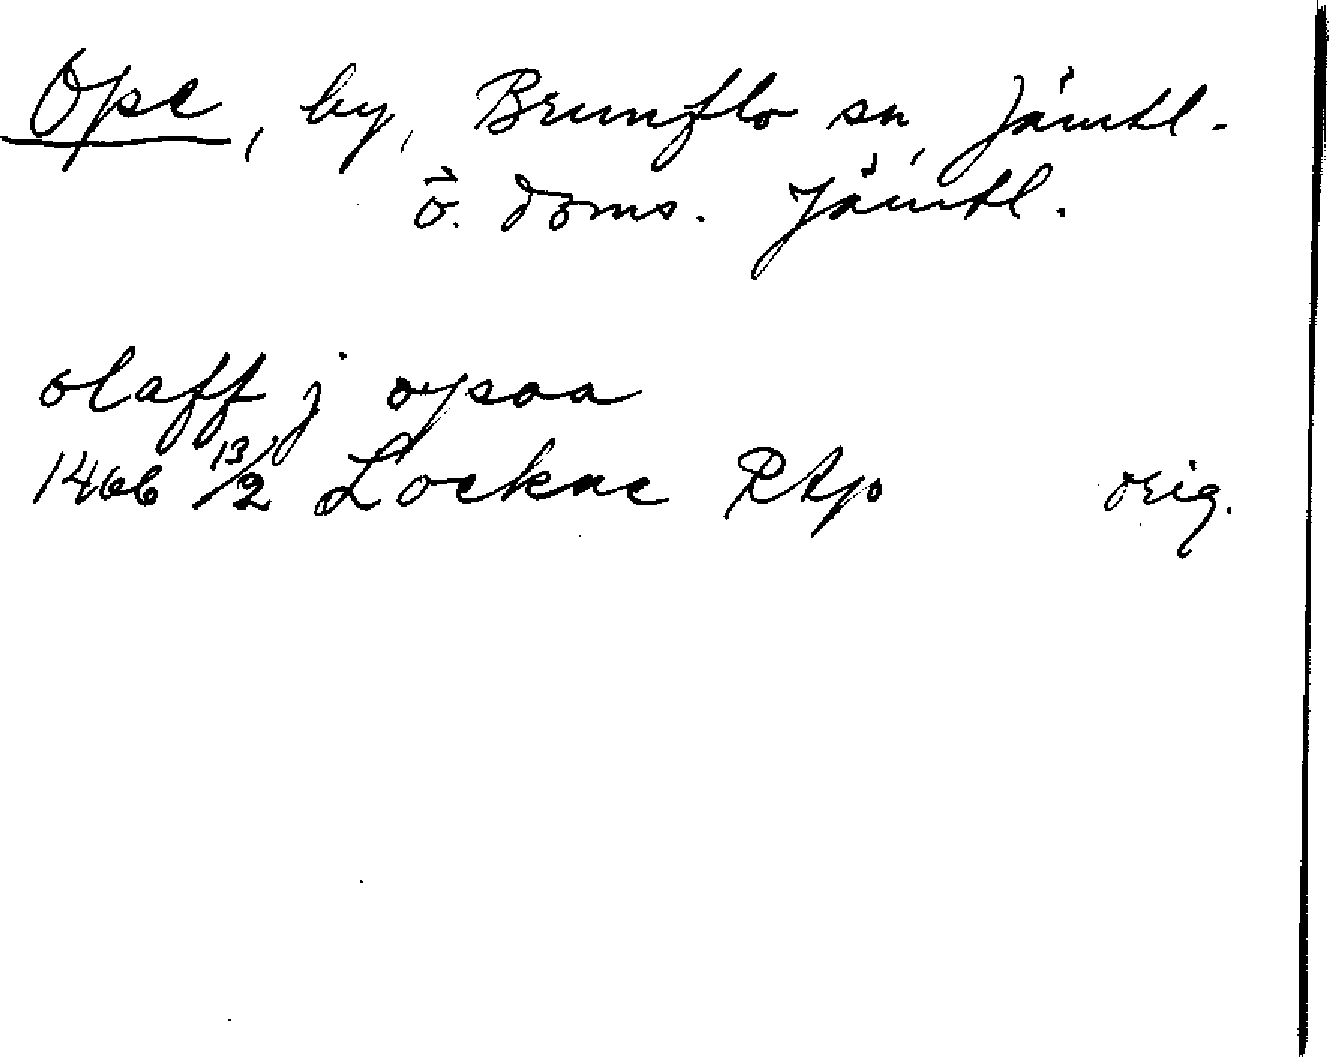 Ope, by, Brunflo sn, Jämtl.
ö. doms. Jämtl.
olaff j opaa
1466 13/2 Lockne RAp orig.